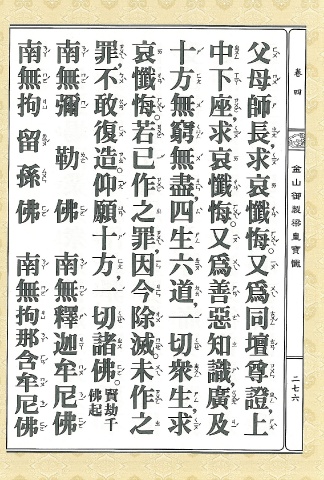 卷四
金山御製梁皇寶懺
二七六
父母師長，求哀懺悔。又為同壇尊證，上
中下座，求哀懺悔。又為善惡知識，廣及
十方無窮無盡，四生六道，一切眾生，求
哀懺悔。若已作之罪，因今除滅。未作之
罪，不敢復造。仰願十方，一切諸佛。賢劫千佛起
南無彌勒佛　南無釋迦牟尼佛
南無拘留孫佛　南無拘那含牟尼佛